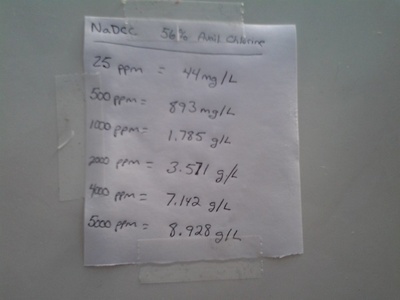 NaDCC 56% Avail Chlorine
25 ppm = 44mg/L
500 ppm = 893mg/L
1000 ppm = 1.785 g/L
2000 ppm = 3.571 g/L
4000 ppm = 7.142 g/L
5000 ppm = 8.928 g/L